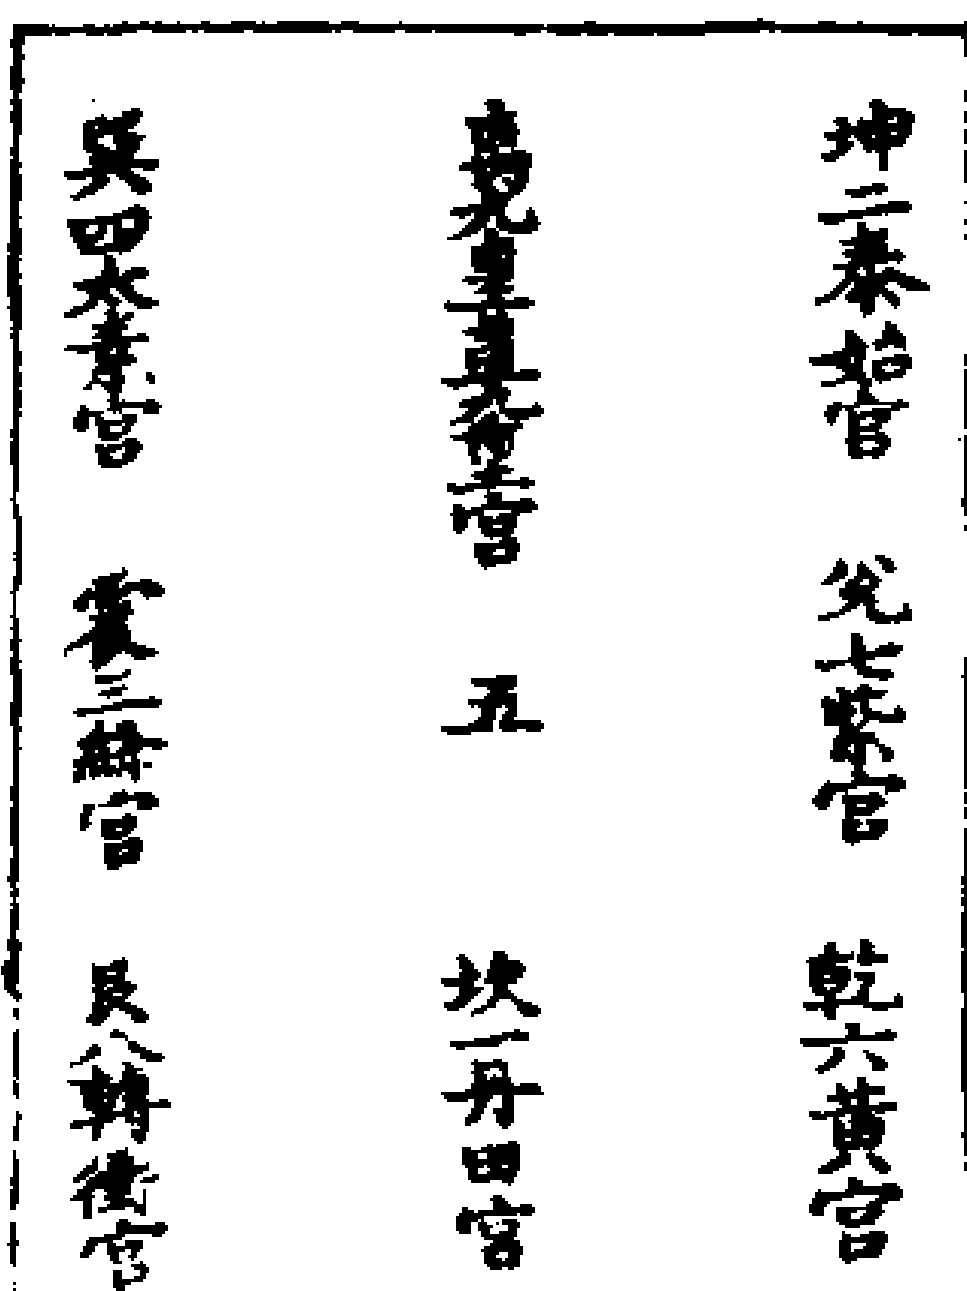 坤二泰始官 兌七紫宮 乾六黃宮
宮 五 坎一丹田宮
巽四太素宮 震三絳宮 艮八轉宮